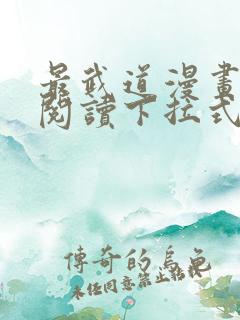 最武道漫畫
閱讀下拉式
傳奇的烏龜
未經同意禁止轉載